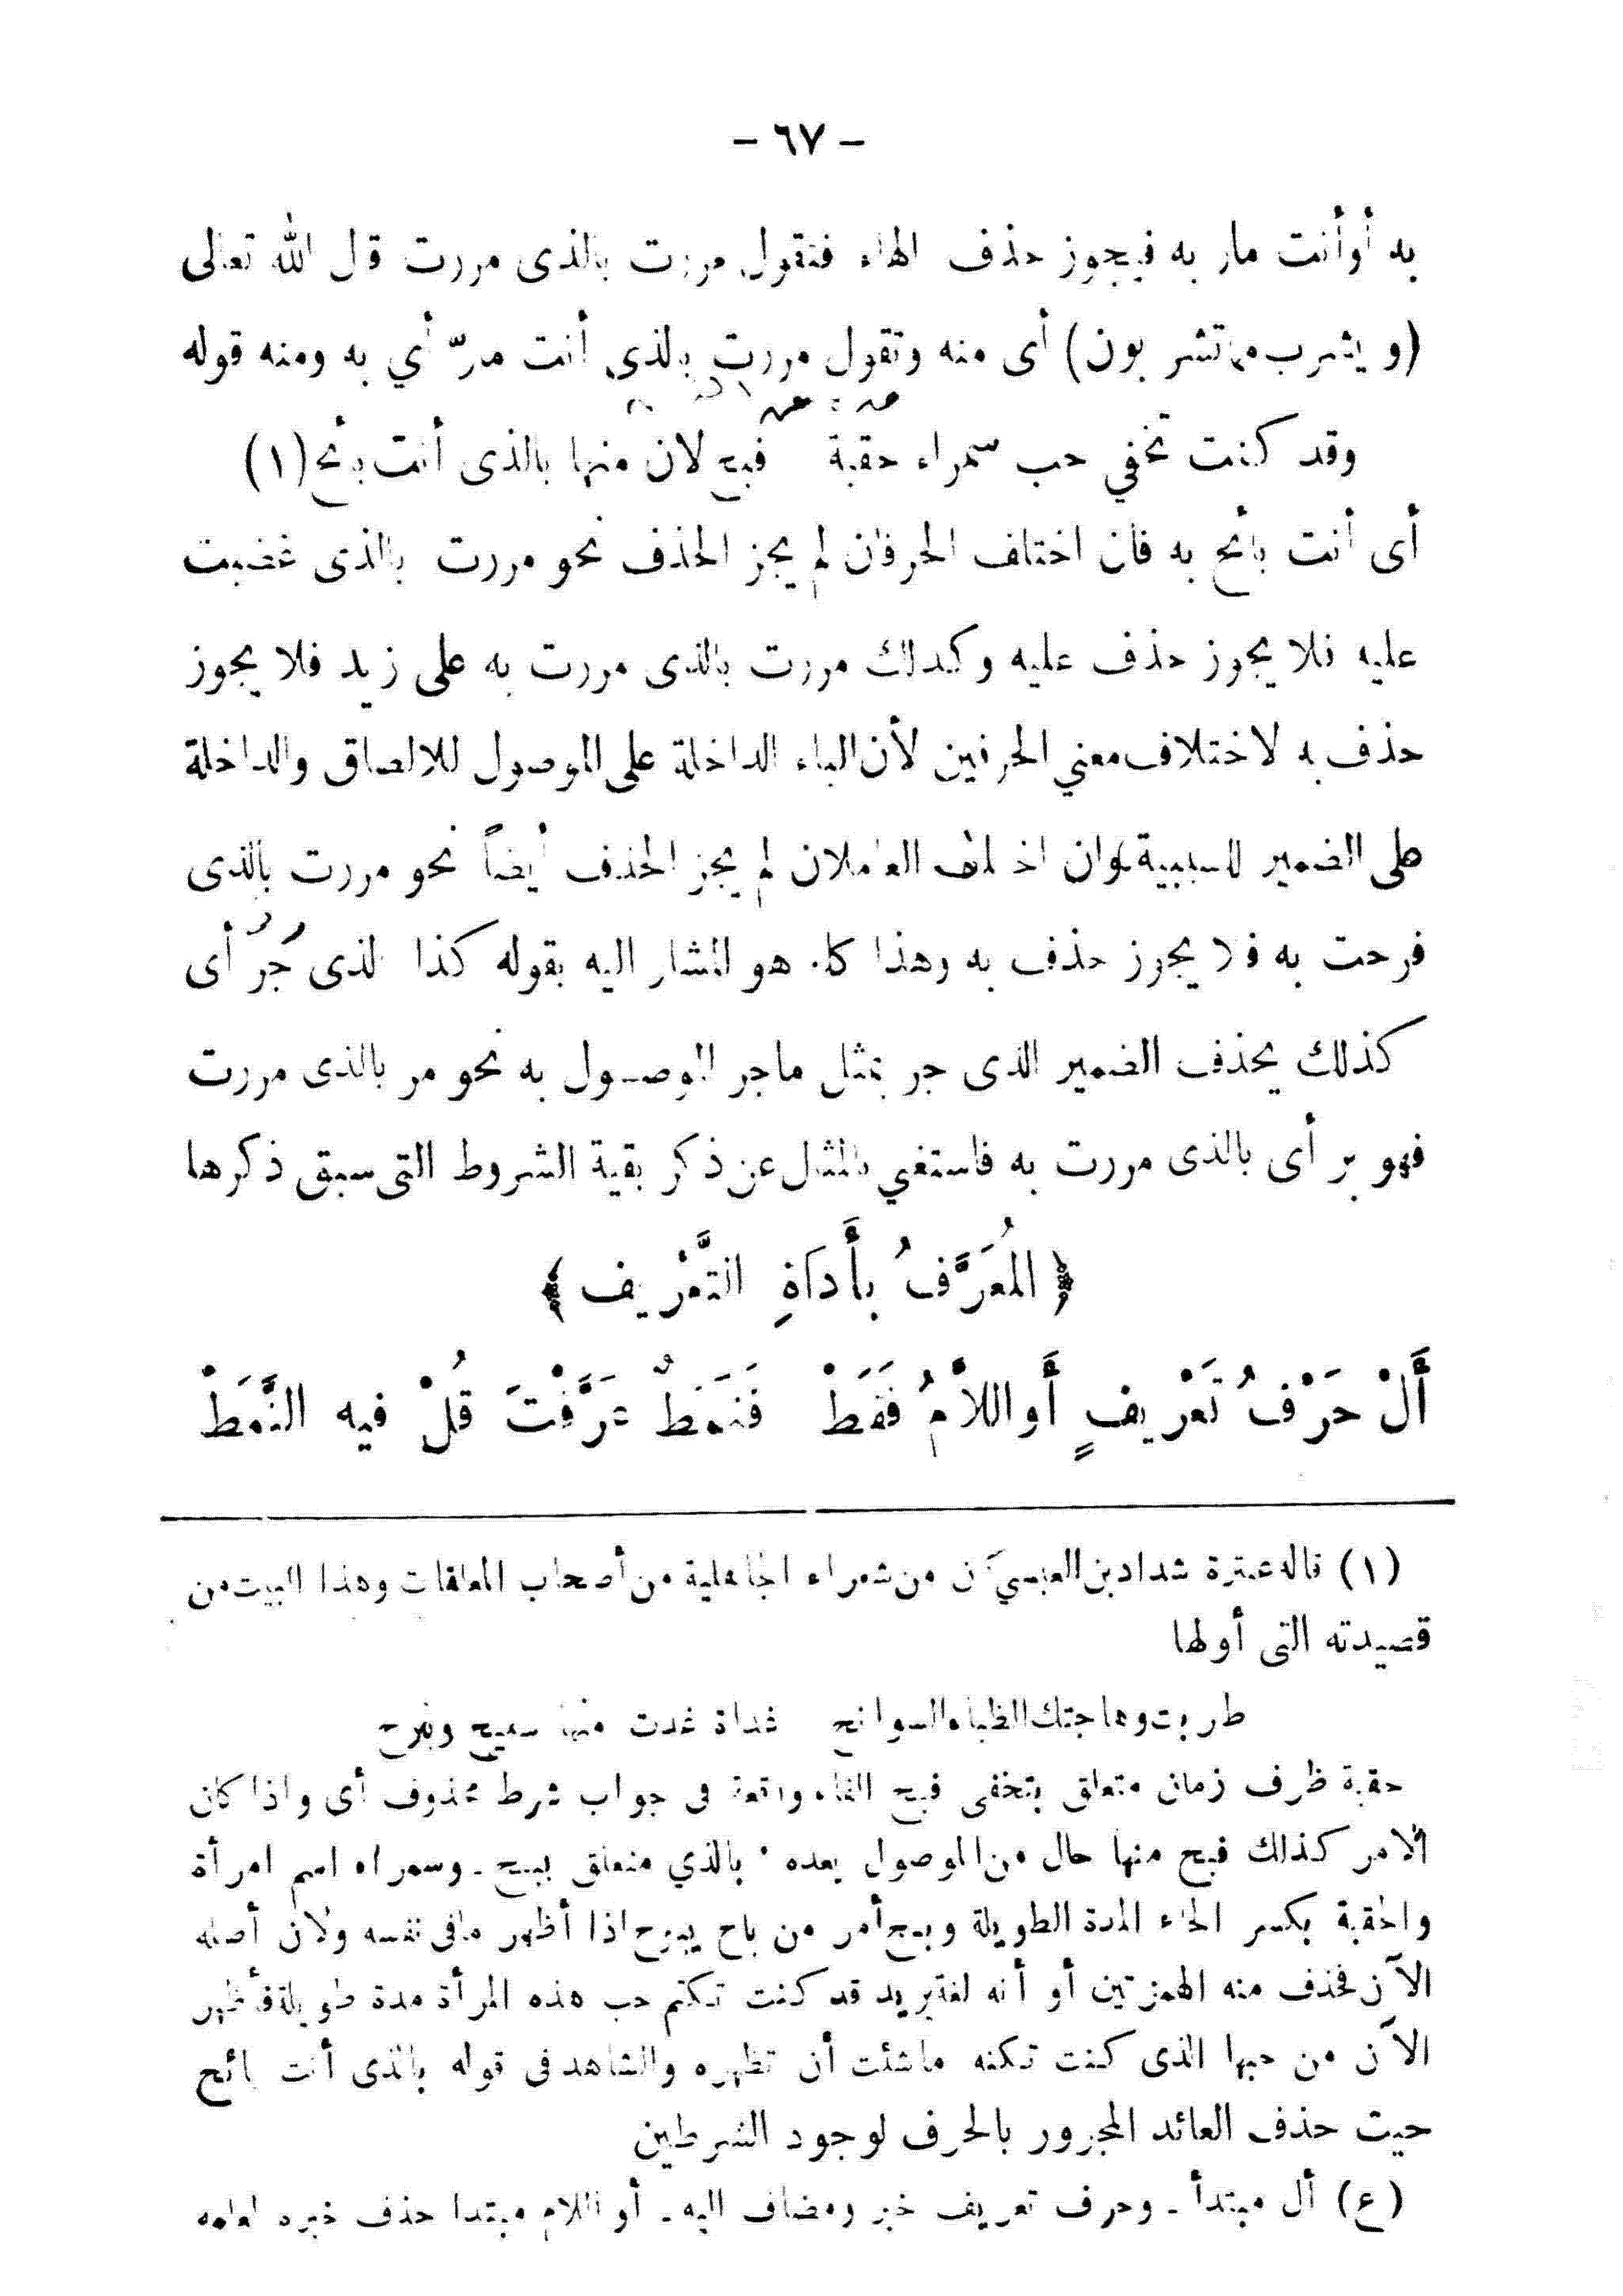 - ٦٧ -
به أو أنت مار به فيجوز حذف الهاء فتقول مررت بالذى مررت قال الله تعالى
(ويشرب مما تشربون) أى منه وتقول مررت بالذى أنت مارّ أي به ومنه قوله
وقد كنت تخفي حب سمراء حقبة فبح لان منها بالذى أنت بائح (١)
أى أنت بائح به فان اختلف الحرفان لم يجز الحذف نحو مررت بالذى غضبت
عليه فلا يجوز حذف عليه وكذلك مررت بالذى مررت به على زيد فلا يجوز
حذف به لاختلاف معني الحرفين لأن الباء الداخلة على الموصول للالصاق والداخلة
على الضمير للسببية وان اختلف العاملان لم يجز الحذف أيضاً نحو مررت بالذى
فرحت به فلا يجوز حذف به وهذا كله هو المشار اليه بقوله كذا الذى جُرَّ أى
كذلك يحذف الضمير الذى جر بمثل ماجر الموصول به نحو مر بالذى مررت
فهو بر أى بالذى مررت به فاستغني بالمثال عن ذكر بقية الشروط التى سبق ذكرها
﴿ المُعَرَّفُ بأَدَاةِ التَّعْرِيف ﴾
أَلْ حَرْفُ تَعْرِيفٍ أَو اللاَّمُ فَقَطْ فَنَمَطٌ عَرَّفْتَ قُلْ فيه النَّمَطْ
(١) قاله عنترة شداد بن العبسي كان من شعراء الجاهلية من أصحاب المعلقات وهذا البيت من
قصيدته التى أولها
طربت وهاجتك الظباء السوانح غداة غدت منها سنيح وبارح
حقبة ظرف زمان متعلق بتخفى فبح الفاء واقعة فى جواب شرط محذوف أى واذا كان
الامر كذلك فبح منها حال من الموصول بعده . بالذي متعلق ببح ـ وسمراء اسم امرأة
والحقبة بكسر الحاء المدة الطويلة وبح أمر من باح يبوح اذا أظهر مافى نفسه ولان أصله
الآن فحذف منه الهمزتين أو أنه لغة يريد قد كنت تكتم حب هذه المرأة مدة طويلة فأظهر
الآن من حبها الذى كنت تكنه ماشئت أن تظهره والشاهد فى قوله بالذى أنت بائح
حيت حذف العائد المجرور بالحرف لوجود الشرطين
(ع) أل مبتدأ ـ وحرف تعريف خبر ومضاف اليه ـ أو اللام مبتدا حذف خبره لعلمه